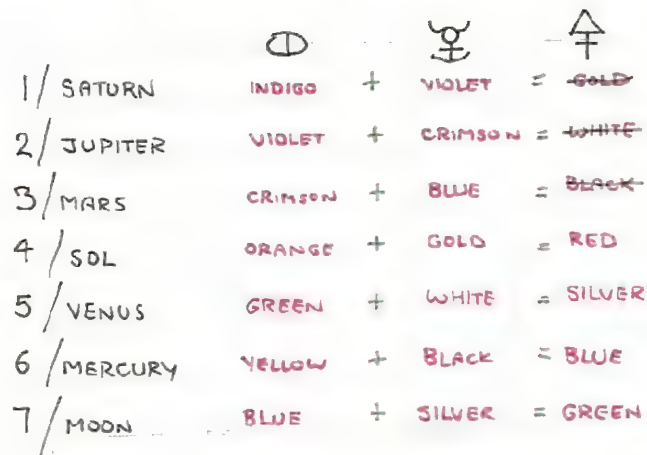 1/ SATURN INDIGO + VIOLET = GOLD
2/ JUPITER VIOLET + CRIMSON = WHITE
3/ MARS CRIMSON + BLUE = BLACK
4/ SOL ORANGE + GOLD = RED
5/ VENUS GREEN + WHITE = SILVER
6/ MERCURY YELLOW + BLACK = BLUE
7/ MOON BLUE + SILVER = GREEN